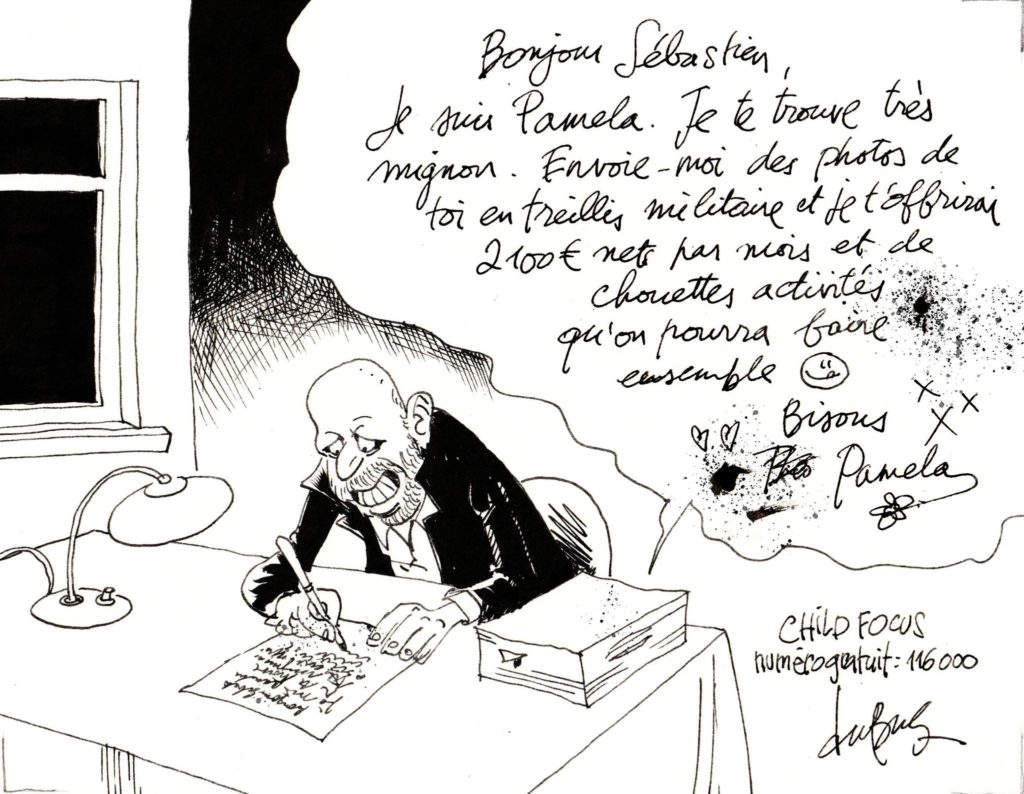 Bonjour Sébastien,
Je suis Pamela. Je te trouve très
mignon. Envoie-moi des photos de
toi en treillis militaire et je t'offrirai
2100€ nets par mois et de
chouettes activités
qu'on pourra faire
ensemble
Bisous
Pamela
CHILD FOCUS
numéro gratuit: 116 000